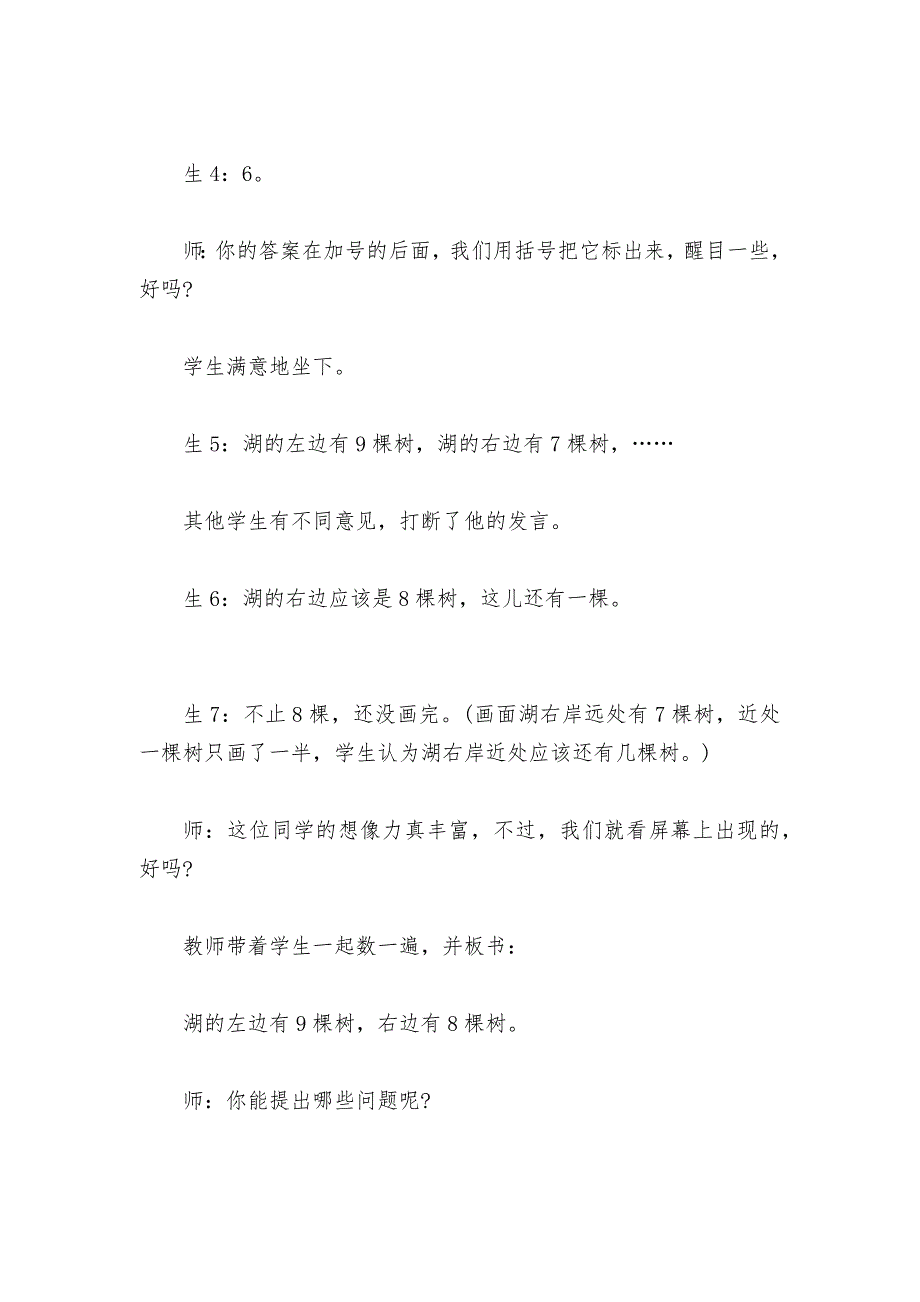 生4：6。
师：你的答案在加号的后面，我们用括号把它标出来，醒目一些，
好吗?
学生满意地坐下。
生5：湖的左边有9棵树，湖的右边有7棵树，……
其他学生有不同意见，打断了他的发言。
生6：湖的右边应该是8棵树，这儿还有一棵。
生7：不止8棵，还没画完。(画面湖右岸远处有7棵树，近处
一棵树只画了一半，学生认为湖右岸近处应该还有几棵树。)
师：这位同学的想像力真丰富，不过，我们就看屏幕上出现的，
好吗?
教师带着学生一起数一遍，并板书：
湖的左边有9棵树，右边有8棵树。
师：你能提出哪些问题呢?